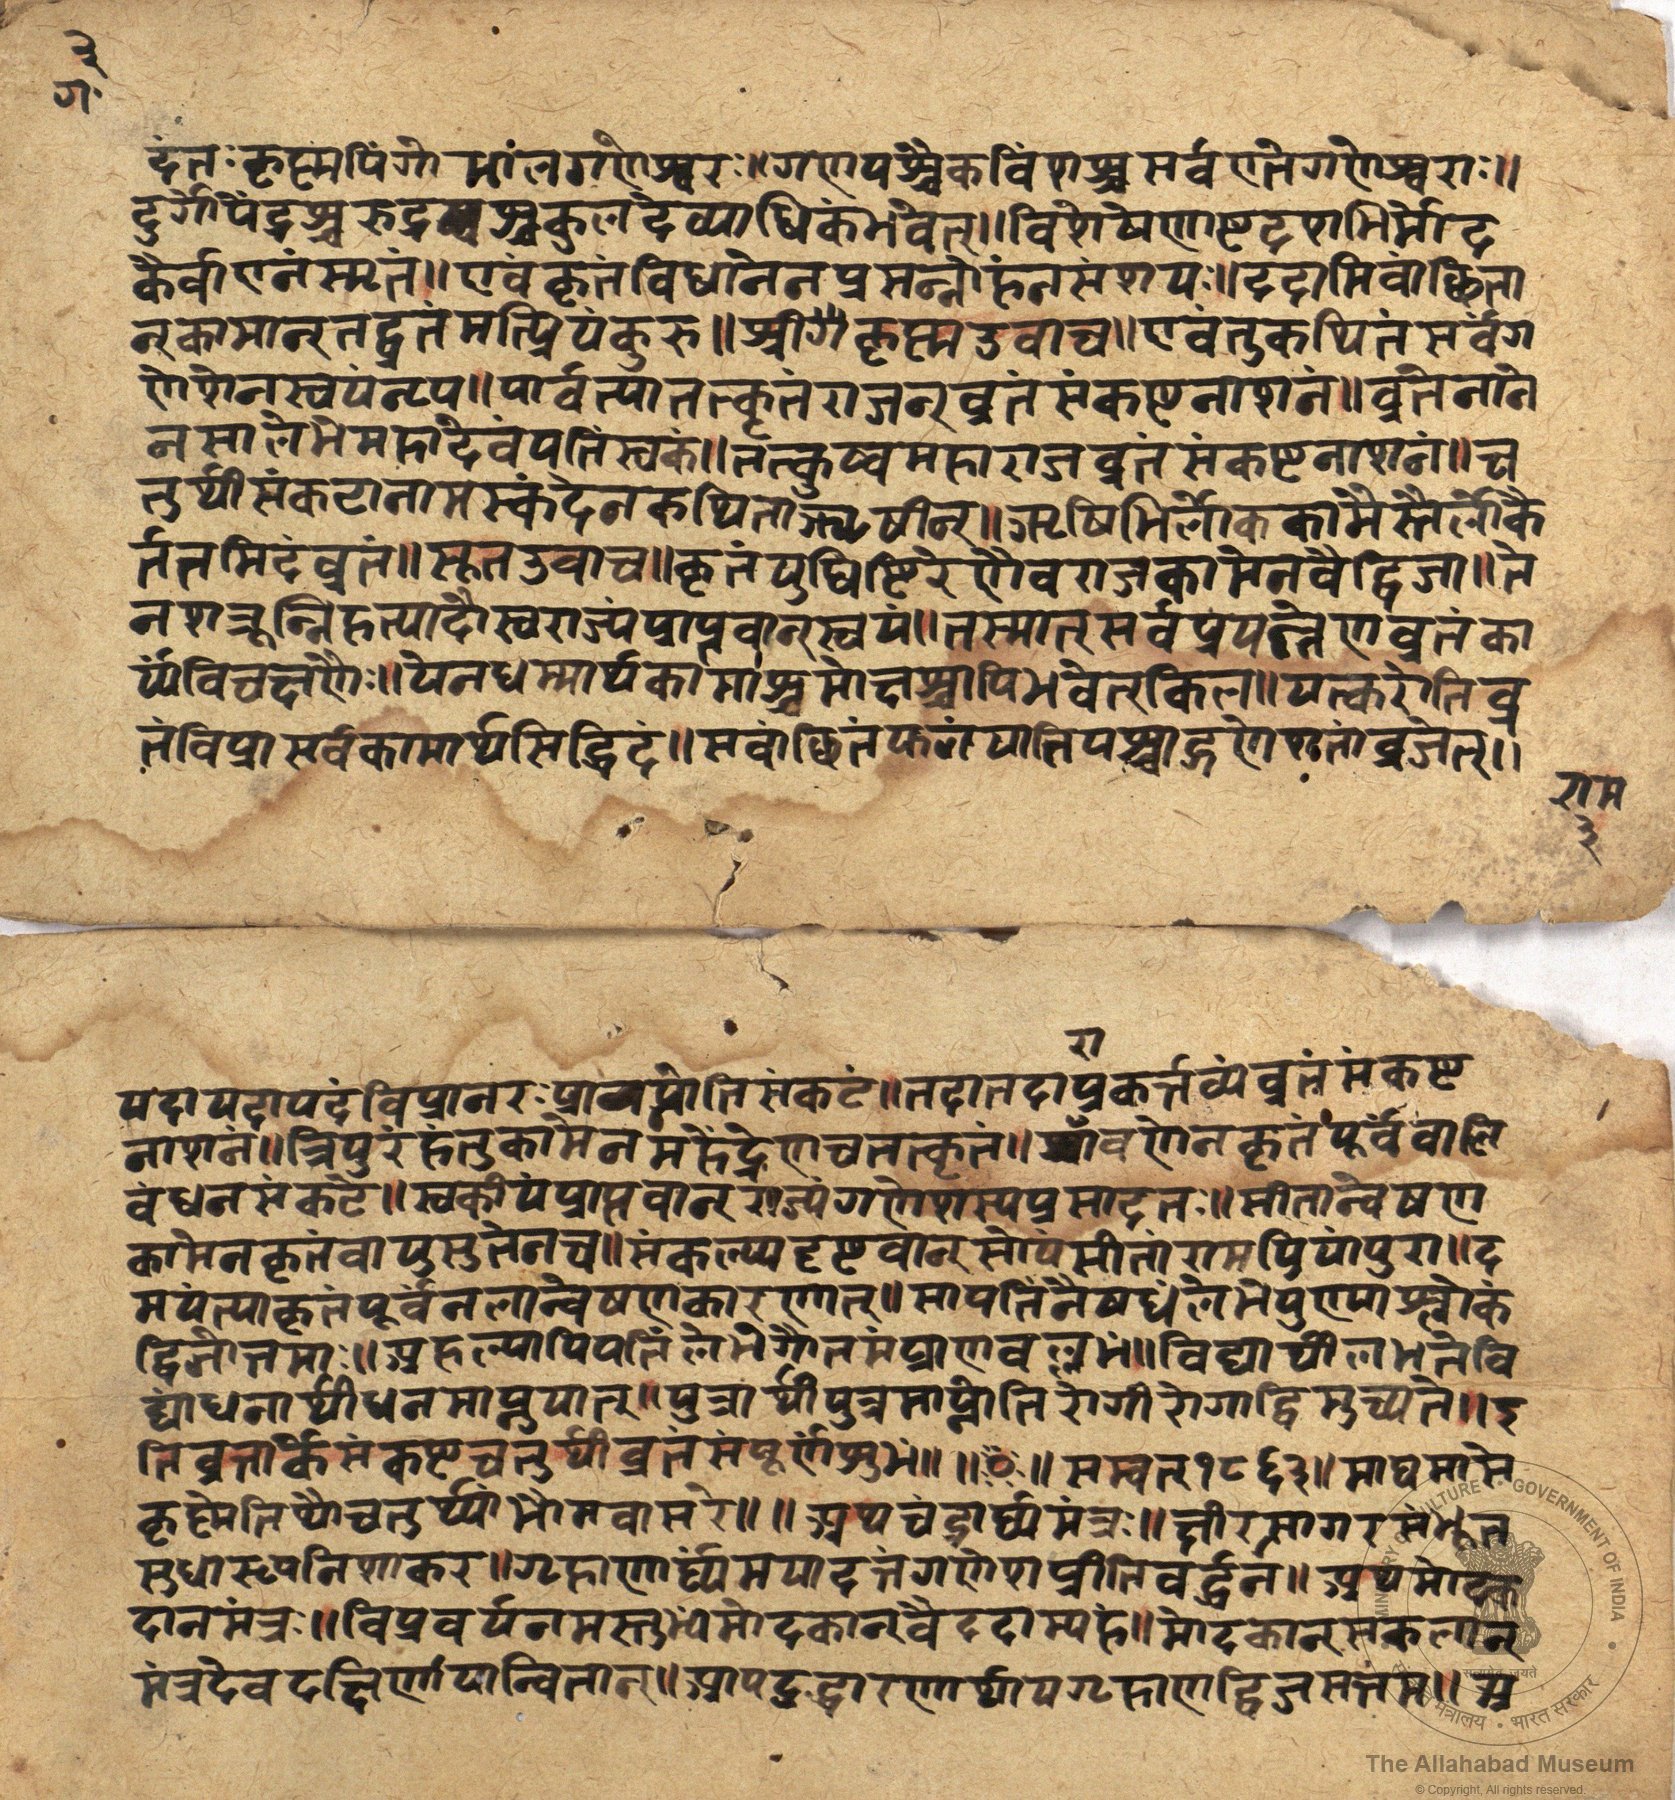 ३
ग॰
दंतः कृष्णपिंगो भांलगणेश्वरः॥गणपश्चैकविंशश्च सर्व एते गणेश्वराः॥
दुर्गोपेंद्रश्च रुद्रश्च कुलदेव्याधिकं भवेत्॥विशेषेणाष्टदशभिर्मोद
कैर्वाएनं स्मृतं॥एवं कृतं विधानेन प्रसन्नोहं न संशयः॥ददामि वांछिता
न् कामान् तद्व्रतं मत्प्रियं कुरु॥श्रीकृष्ण उवाच॥एवं तु कथितं सर्वं ग
णेशेन स्वयं नृप॥पार्वत्या तत्कृतं राजन् व्रतं संकष्टनाशनं॥व्रतेनाने
न सा लेभे महादेवं पतिं स्वकं॥तत्कुरुष्व महाराज व्रतं संकष्टनाशनं॥च
तुर्थी संकटानाम स्कंदेन कथिता ऋषीन्॥ऋषिभिर्लोककामैस्तैर्लोकै
र्ततमिदं व्रतं॥सूत उवाच॥कृतं युधिष्टिरेणैव राजकामेन वै द्विजा॥ते
न शत्रून्निहत्यादौ स्वराज्यं प्राप्तवान् स्वयं॥तस्मात् सर्वप्रयत्नेण व्रतं का
र्य्यं विचक्षणैः॥येन धर्मार्थकामाश्च मोक्षश्चापि भवेत् किल॥यत्करोति व्र
तं विप्रा सर्वकामार्थसिद्धिदं॥सवांछितं फलं याति पश्चाद्गणेशतां व्रजेत्॥
राम
३
रा
यदा यदा पदं विप्रा नरः प्राप्नोति संकटं॥तदा तदा प्रकर्त्तव्यं व्रतं संकष्ट
नाशनं॥त्रिपुरं हंतुकामेन महेंद्रेण च तत्कृतं॥रावणेन कृतं पूर्वं वालि
वंधनसंकटे॥स्वकीयं प्राप्तवान् राज्यं गणेशस्य प्रसादतः॥सीतान्वेषण
कामेन कृतं वायुसुतेन च॥संकल्प्य दृष्टवान् सोयं सीतां रामप्रियां पुरा॥द
मयंत्या कृतं पूर्वं नलान्वेषणकारणात्॥सा पतिं नैषधं लेभे पुण्यश्लोकं
द्विजोत्तमाः॥अहल्यापि पतिं लेभे गौतमं प्राणवल्लभं॥विद्यार्थी लभते वि
द्यां धनार्थी धनमाप्नुयात्॥पुत्रार्थी पुत्रमाप्नोति रोगी रोगाद्विमुच्यते॥इ
ति व्रतार्के संकष्टचतुर्थीव्रतं संपूर्णं शुभं॥ ॥ॐ॥ सम्वत् १८६३॥माघमासे
कृष्णे तिथौ चतुर्थ्यां भौमवासरे॥ ॥अथ चंद्रार्घ्यमंत्रः॥क्षीरसागरसंभूत
सुधारूप निशाकर॥गृहाणार्घ्यं मया दत्तं गणेशप्रीतिवर्द्धन॥अथ मोदक
दानमंत्रः॥विप्रवर्य नमस्तुभ्यं मोदकान् वै ददाम्यहं॥मोदकान् सफलान्
मंत्रदेव दक्षिणायान्वितान्॥आपदुद्धारणार्थाय गृहाण द्विजसत्तम॥अ
MINISTRY OF CULTURE • GOVERNMENT OF INDIA
सत्यमेव जयते
मंत्रालय • भारत सरकार
The Allahabad Museum
© Copyright, All rights reserved.